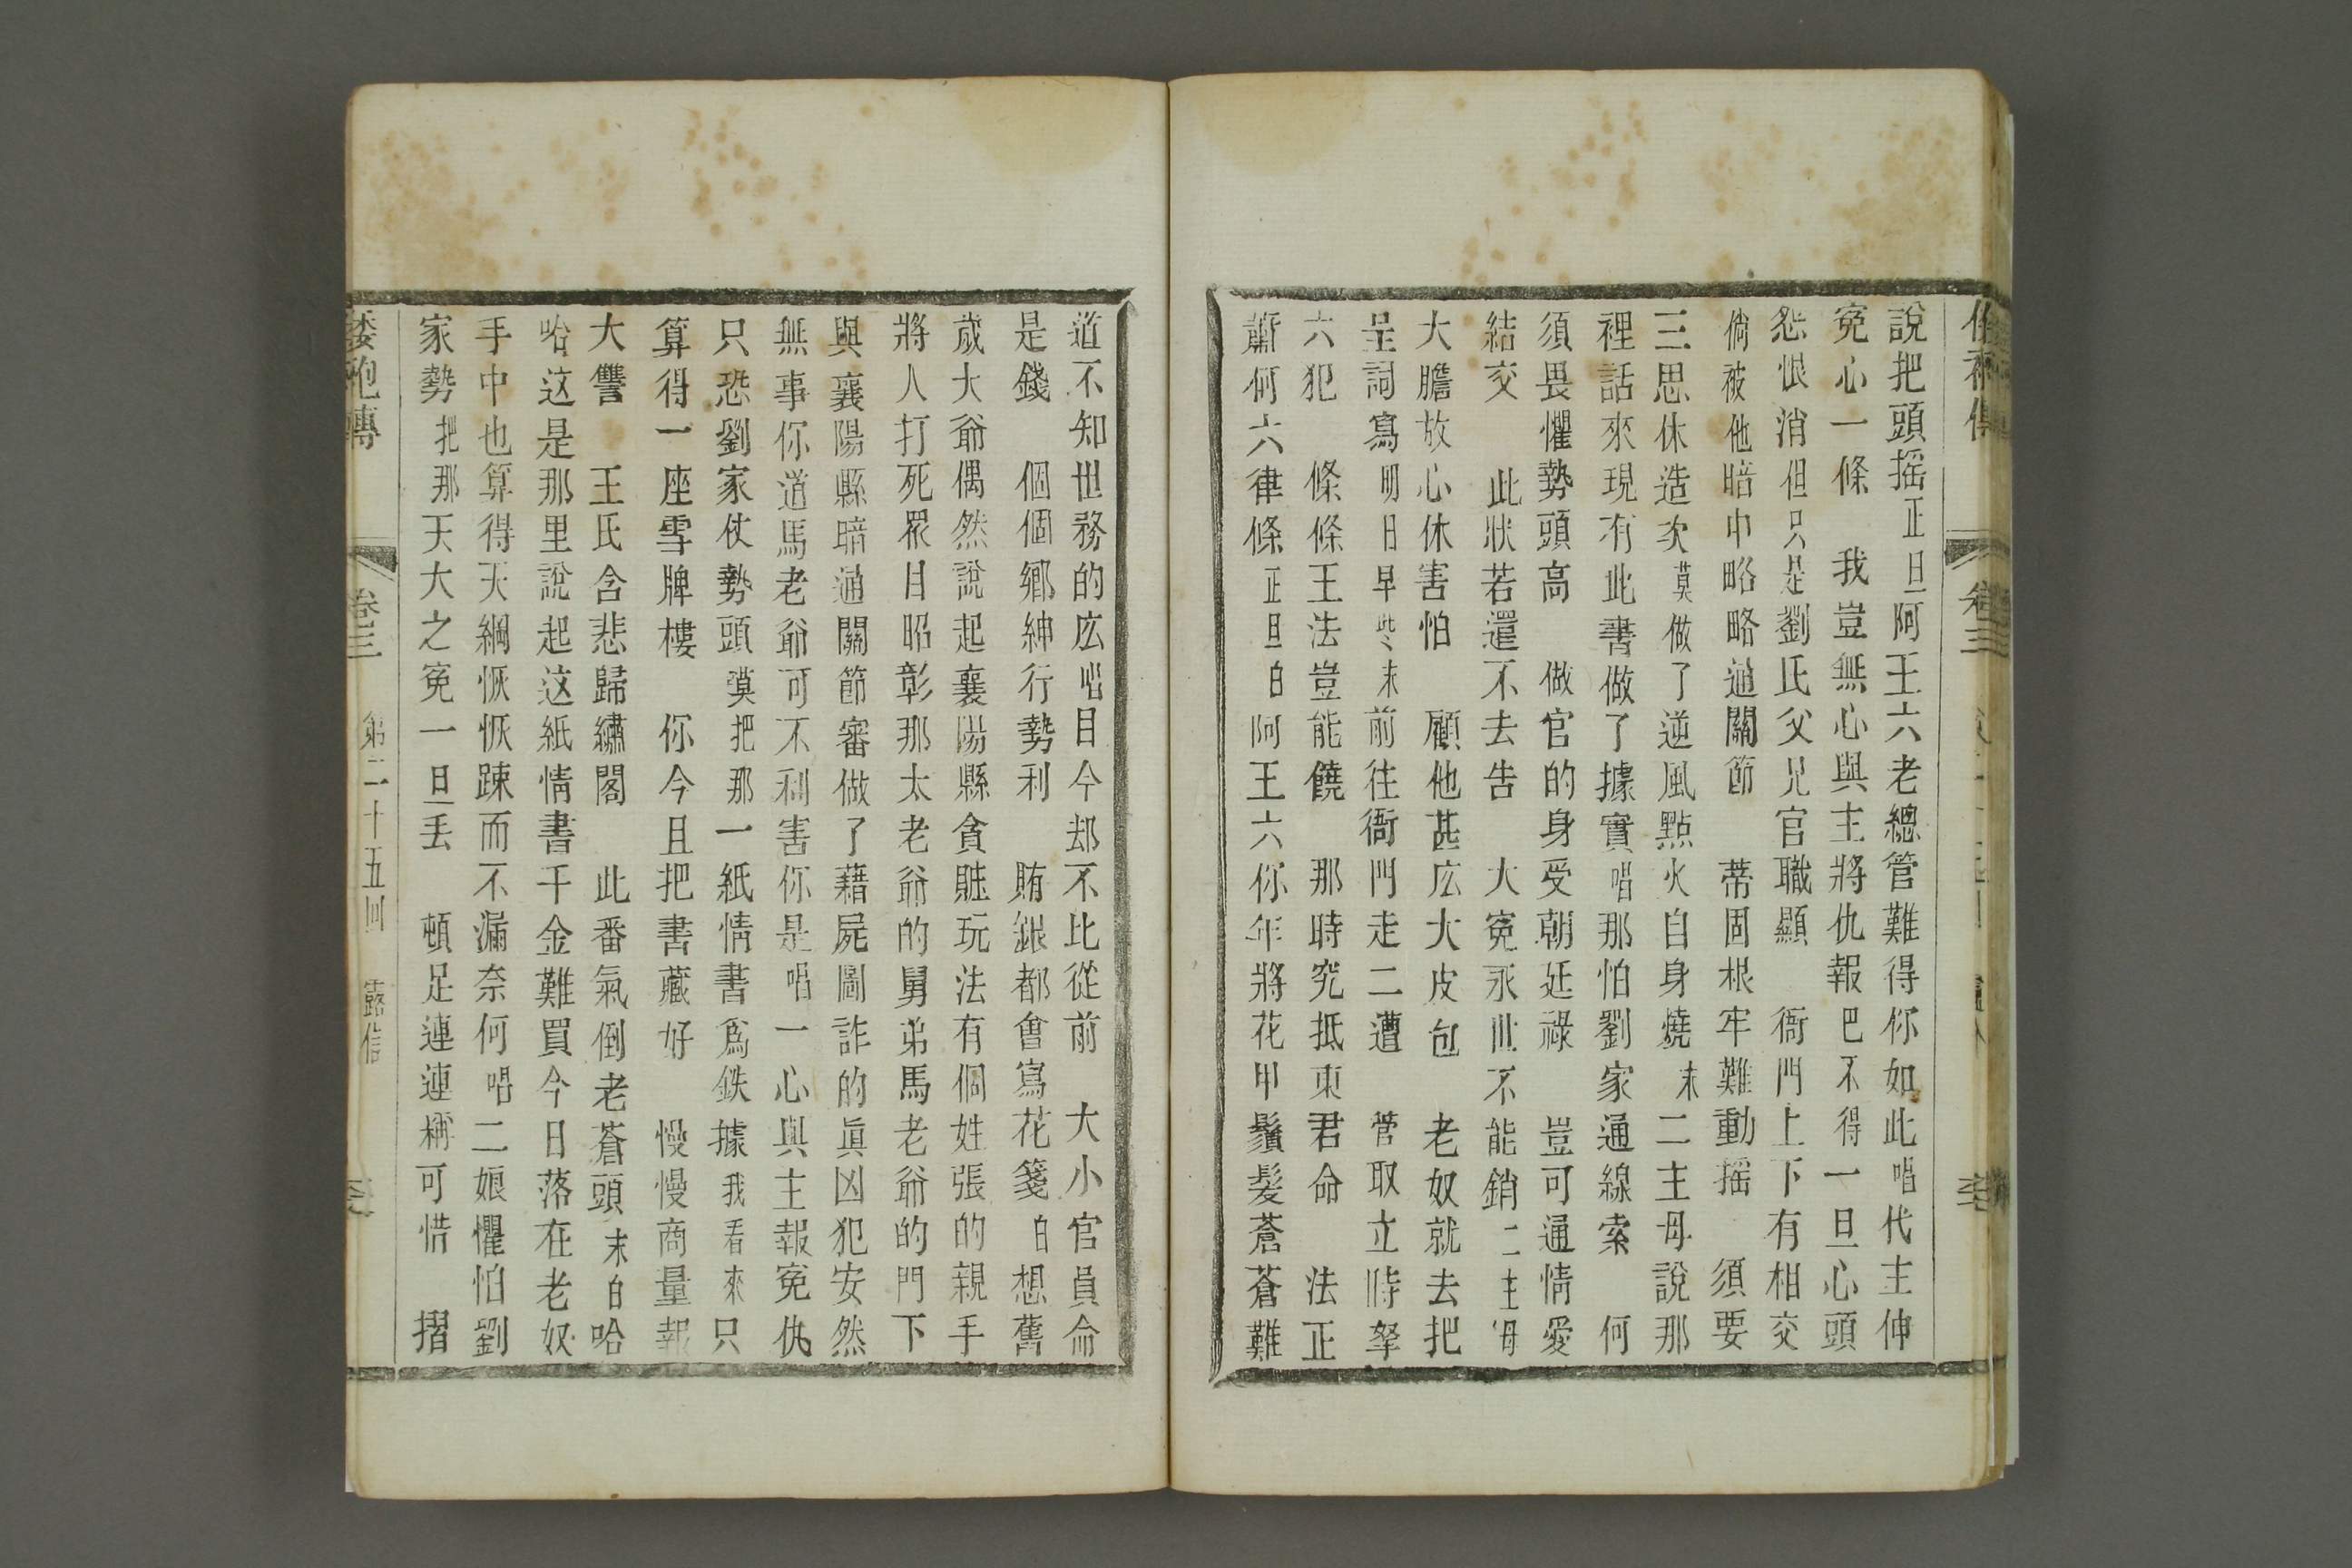 說把頭摇正旦阿王六老總管難得你如此唱代主伸
寃心一條 我豈無心與主將仇報巴不得一旦心頭
怨恨消但只是劉氏父兄官職顯 衙門上下有相交
倘被他暗中略略通關節 蒂固根牢難動摇 須要
三思休造次莫做了逆風點火自身燒末二主母說那
裡話來現有此書做了據實唱那怕劉家通線索 何
須畏懼勢頭高 做官的身受朝廷祿 豈可通情愛
結交 此狀若還不去告 大寃永世不能銷二主母
大膽放心休害怕 顧他甚庅大皮包 老奴就去把
呈詞寫明日早些末前往衙門走二遭 管取立時拏
六犯 條條王法豈能饒 那時究抵東君命 法正
蕭何六律條正旦白阿王六你年將花甲鬚髮蒼蒼難
道不知世務的庅唱目今却不比從前 大小官員侖
是錢 個個鄉紳行勢利 賄銀都會寫花箋白想舊
歲大爺偶然說起襄陽縣貪賍玩法有個姓張的親手
將人打死眾目昭彰那太老爺的舅弟馬老爺的門下
與襄陽縣暗通關節審做了藉屍圖詐的眞凶犯安然
無事你道馬老爺可不利害你是唱一心與主報寃仇
只恐劉家仗勢頭莫把那一紙情書爲鉄據我看來只
算得一座雪牌樓 你今且把書藏好 慢慢商量報
大讐 王氏含悲歸繡閣 此番氣倒老蒼頭末白哈
哈这是那里說起这紙情書千金難買今日落在老奴
手中也算得天綱恢恢踈而不漏奈何唱二娘懼怕劉
家勢把那天大之寃一旦丢 頓足連連稱可惜 摺
倭袍傳 卷三 第二十五囘 露信